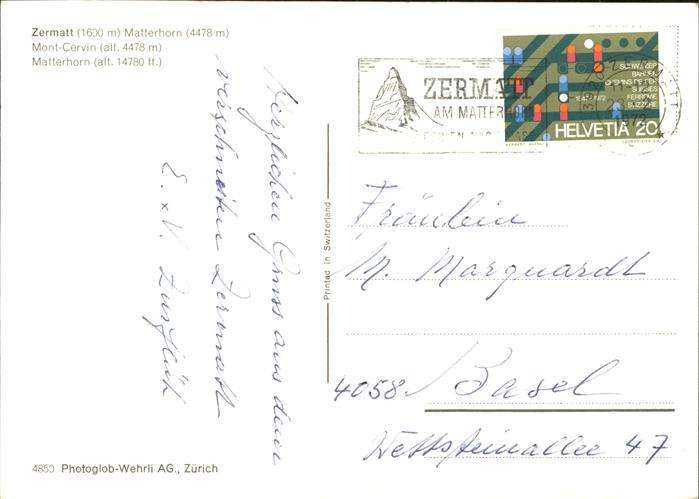 Zermatt (1600 m) Matterhorn (4478 m)
Mont-Cervin (alt. 4478 m)
Matterhorn (alt. 14780 ft.)
ZERMATT
AM MATTERHORN
SCHWEIZER
BAHNEN
CHEMINS DE FER
SUISSES
FERROVIE
SVIZZERE
1847-1972
HELVETIA 20
Herzlichen Gruss aus dem
verschneiten Zermatt
E. + V.
Printed in Switzerland
Fräulein
M. Marquardt
4058 Basel
Wettsteinallee 47
4850 Photoglob-Wehrli AG., Zürich